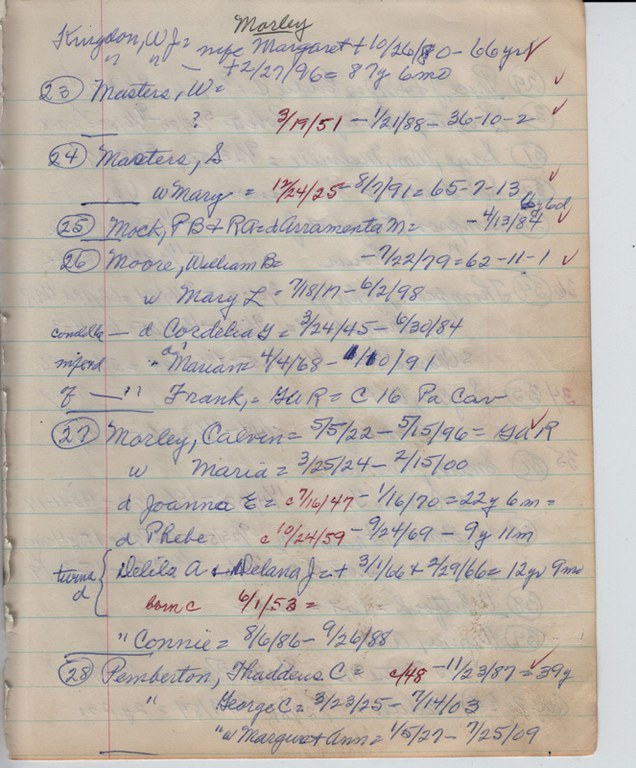 Morley
Kingdon, W J = npc Margaret + 10/26/80 - 66 yrs
" " - +2/27/96 = 87y 6mo
23 Masters, W =
? 3/19/51 - 1/21/88 - 36-10-2
24 Masters, S
w Mary = 12/24/25 - 8/7/91 = 65-7-13
25 Mock, P B + R A = d Arramenta M = - 4/13/84 6y 6d
26 Moore, William B = - 7/22/79 = 62-11-1
w Mary L = 7/18/17 - 6/2/98
d Cordelia = 3/24/45 - 6/30/84
Mariam 4/4/68 - 1/10/91
of - " Frank, = GAR = C 16 Pa Cav
27 Morley, Calvin = 5/5/22 - 5/15/96 = GAR
w Maria = 3/25/24 - 2/15/00
d Joanna E = c 7/16/47 - 1/16/70 = 22y 6m =
d Phebe c 10/24/59 - 9/24/69 - 9y 11m
twins d Delila A + Delana J = + 3/1/66 + 2/29/66 = 12yr 9mo
born c 6/1/53 =
" Connie = 8/6/86 - 9/26/88
28 Pemberton, Thaddeus C = c/48 - 11/23/87 = 39y
" George C = 3/23/25 - 7/14/03
" w Margaret Ann = 1/5/27 - 7/25/09